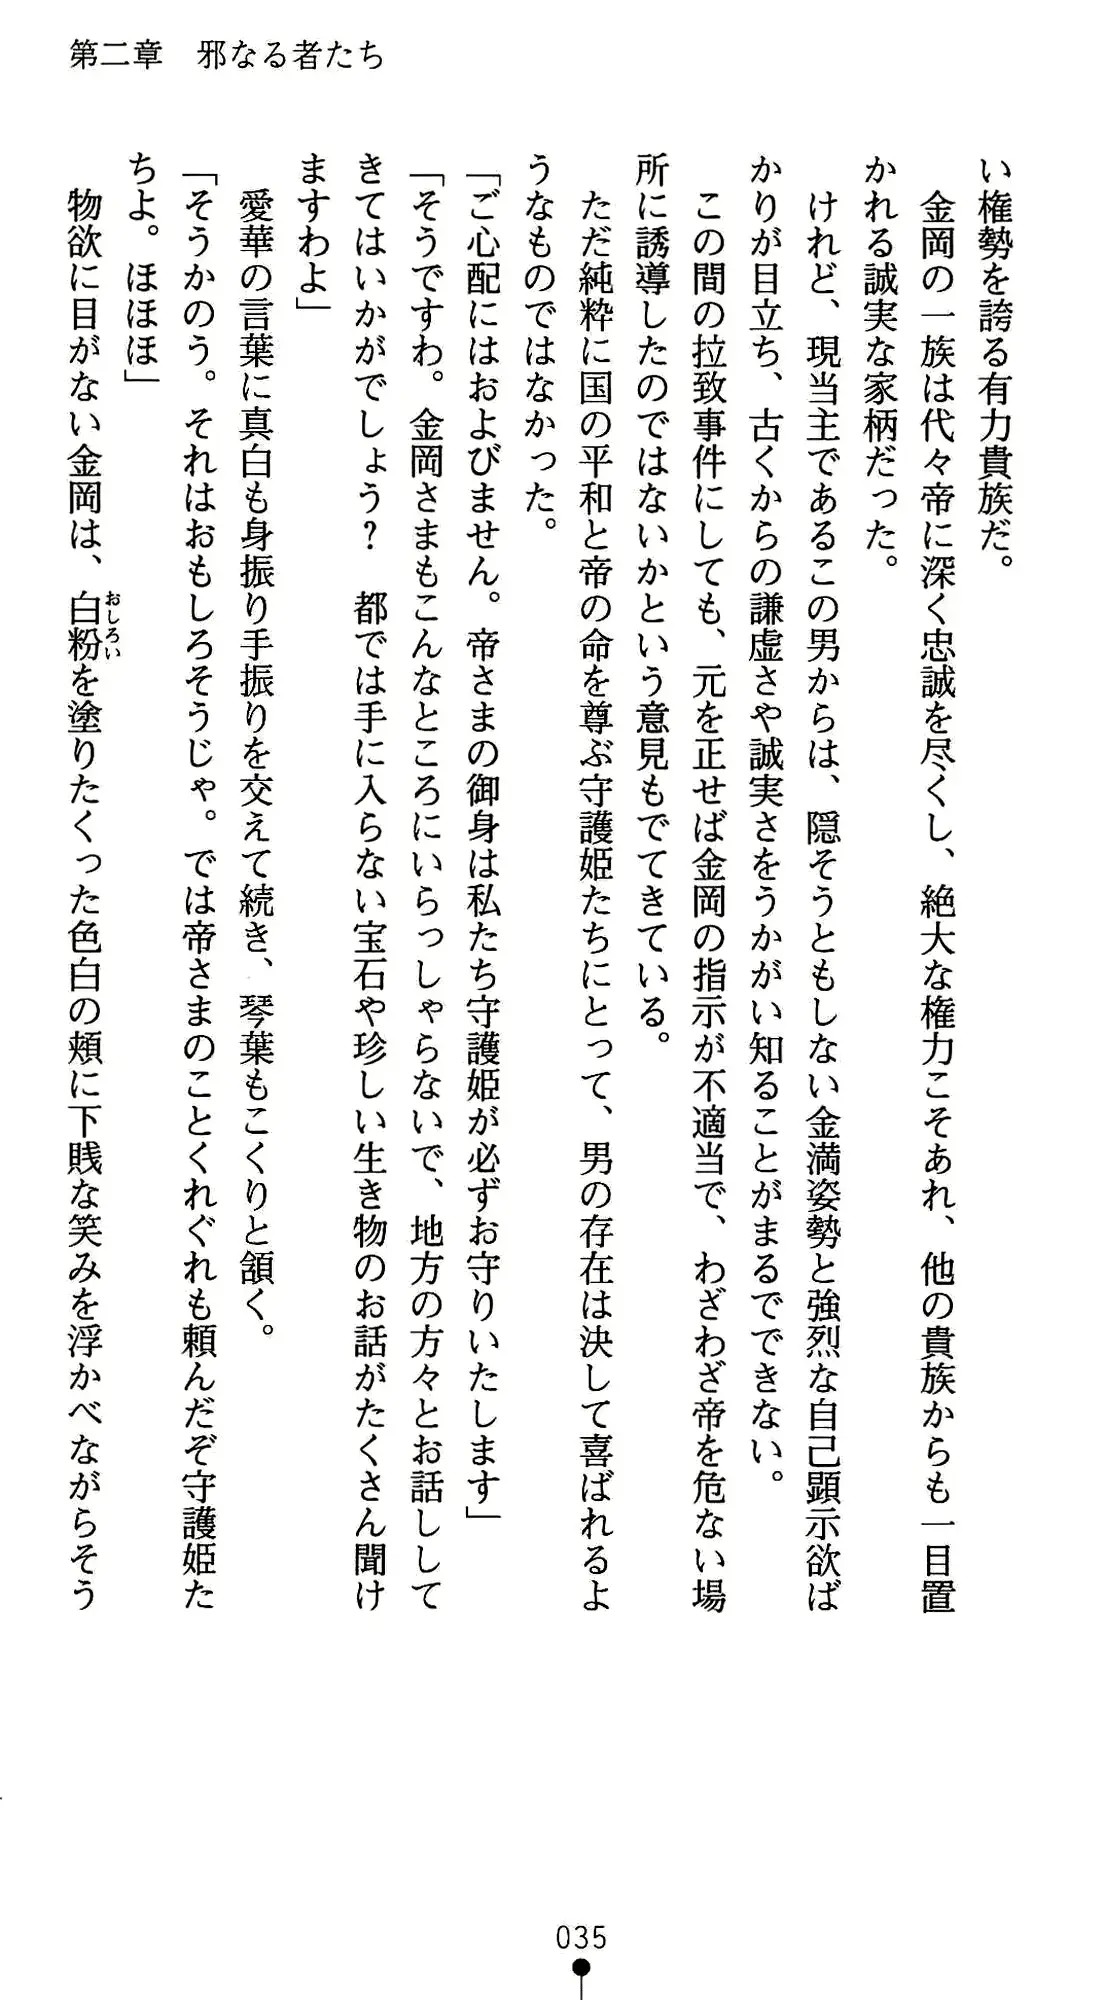 第二章　邪なる者たち
い権勢を誇る有力貴族だ。
　金岡の一族は代々帝に深く忠誠を尽くし、絶大な権力こそあれ、他の貴族からも一目置
かれる誠実な家柄だった。
　けれど、現当主であるこの男からは、隠そうともしない金満姿勢と強烈な自己顕示欲ば
かりが目立ち、古くからの謙虚さや誠実さをうかがい知ることがまるでできない。
　この間の拉致事件にしても、元を正せば金岡の指示が不適当で、わざわざ帝を危ない場
所に誘導したのではないかという意見もでてきている。
　ただ純粋に国の平和と帝の命を尊ぶ守護姫たちにとって、男の存在は決して喜ばれるよ
うなものではなかった。
「ご心配にはおよびません。帝さまの御身は私たち守護姫が必ずお守りいたします」
「そうですわ。金岡さまもこんなところにいらっしゃらないで、地方の方々とお話しして
きてはいかがでしょう？　都では手に入らない宝石や珍しい生き物のお話がたくさん聞け
ますわよ」
　愛華の言葉に真白も身振り手振りを交えて続き、琴葉もこくりと頷く。
「そうかのう。それはおもしろそうじゃ。では帝さまのことくれぐれも頼んだぞ守護姫た
ちよ。ほほほ」
　物欲に目がない金岡は、白粉を塗りたくった色白の頬に下賎な笑みを浮かべながらそう
おしろい
035